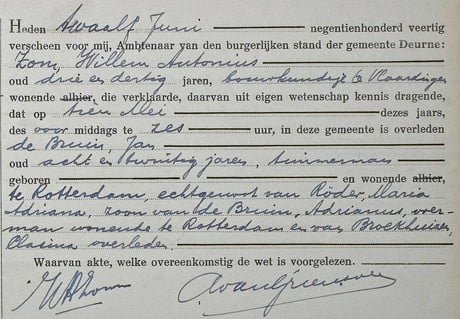 Heden twaalf Juni negentienhonderd veertig
verscheen voor mij, Ambtenaar van den burgerlijken stand der gemeente Deurne:
Zom, Willem Antonius
oud drie en dertig jaren, bouwkundige te Vlaardingen
wonende alhier, die verklaarde, daarvan uit eigen wetenschap kennis dragende,
dat op tien Mei dezes jaars,
des voor middags te zes uur, in deze gemeente is overleden
de Bruin, Jan
oud acht en twintig jaren, timmerman
geboren en wonende alhier,
te Rotterdam, echtgenoot van Röder, Maria
Adriana, zoon van de Bruin, Adrianus, voer-
man wonende te Rotterdam en van Broekhuizen,
Clasina overleden.
Waarvan akte, welke overeenkomstig de wet is voorgelezen.